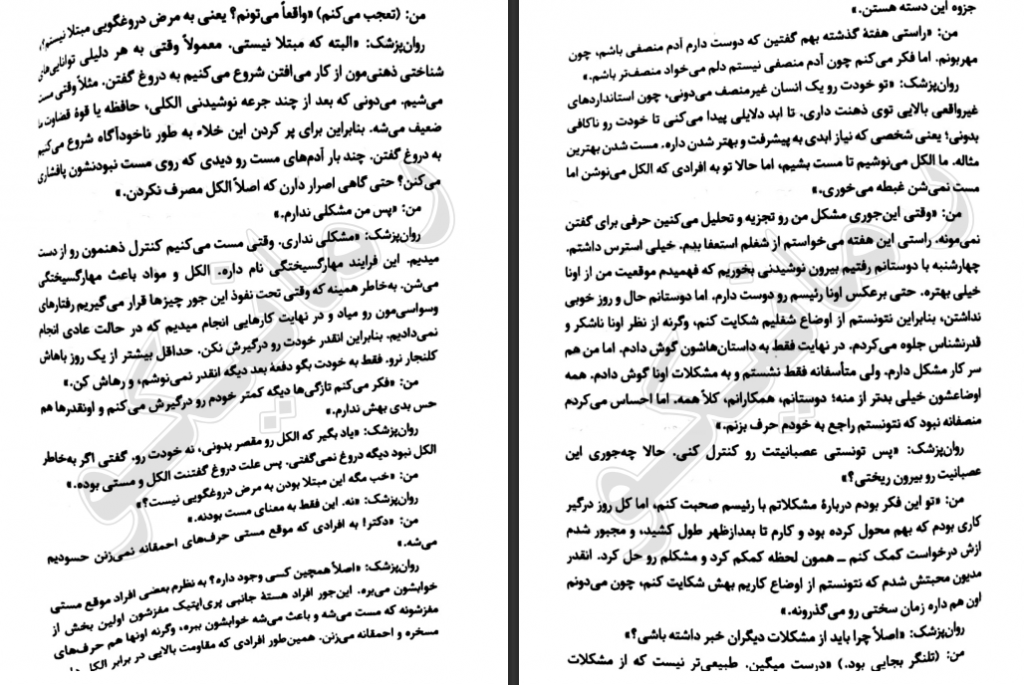 من: (تعجب می‌کنم) «واقعاً می‌تونم؟ یعنی به مرض دروغگویی مبتلا نیستم؟»
روان‌پزشک: «البته که مبتلا نیستی. معمولاً وقتی به هر دلیلی توانایی‌های
شناختی ذهنی‌مون از کار می‌افتن شروع می‌کنیم به دروغ گفتن. مثلاً وقتی مست
می‌شیم. می‌دونی که بعد از چند جرعه نوشیدنی الکلی، حافظه یا قوهٔ قضاوت
ضعیف می‌شه. بنابراین برای پر کردن این خلاء به طور ناخودآگاه شروع می‌کنیم
به دروغ گفتن. چند بار آدم‌های مست رو دیدی که روی مست نبودنشون پافشاری
می‌کنن؟ حتی گاهی اصرار دارن که اصلاً الکل مصرف نکردن.»
من: «پس من مشکلی ندارم.»
روان‌پزشک: «مشکلی نداری. وقتی مست می‌کنیم کنترل ذهنمون رو از دست
میدیم. این فرایند مهارگسیختگی نام داره. الکل و مواد باعث مهارگسیختگی
می‌شن. به‌خاطر همینه که وقتی تحت نفوذ این جور چیزها قرار می‌گیریم رفتارهای
وسواسی‌مون رو میاد و در نهایت کارهایی انجام میدیم که در حالت عادی انجام
نمی‌دادیم. بنابراین انقدر خودت رو درگیرش نکن. حداقل بیشتر از یک روز باهاش
کلنجار نرو. فقط به خودت بگو دفعهٔ بعد دیگه انقدر نمی‌نوشم، و رهاش کن.»
من: «فکر می‌کنم تازگی‌ها دیگه کمتر خودم رو درگیرش می‌کنم و اونقدرها هم
حس بدی بهش ندارم.»
روان‌پزشک: «یاد بگیر که الکل رو مقصر بدونی، نه خودت رو. گفتی اگر به‌خاطر
الکل نبود دیگه دروغ نمی‌گفتی. پس علت دروغ گفتنت الکل و مستی بوده.»
من: «خب مگه این مبتلا بودن به مرض دروغگویی نیست؟»
روان‌پزشک: «نه. این فقط به معنای مست بودنه.»
من: «دکتر! به افرادی که موقع مستی حرف‌های احمقانه نمی‌زنن حسودیم
می‌شه.»
روان‌پزشک: «اصلاً همچین کسی وجود داره؟ به نظرم بعضی افراد موقع مستی
خوابشون می‌بره. این‌جور افراد هستهٔ جانبی پری‌اپتیک مغزشون اولین بخش از
مغزشونه که مست می‌شه و باعث می‌شه خوابشون ببره، وگرنه اونها هم حرف‌های
مسخره و احمقانه می‌زنن. همین‌طور افرادی که مقاومت بالایی در برابر الکل
جزوه این دسته هستن.»
من: «راستی هفتهٔ گذشته بهم گفتین که دوست دارم آدم منصفی باشم، چون
مهربونم. اما فکر می‌کنم چون آدم منصفی نیستم دلم می‌خواد منصف‌تر باشم.»
روان‌پزشک: «تو خودت رو یک انسان غیرمنصف می‌دونی، چون استانداردهای
غیرواقعی بالایی توی ذهنت داری. تا ابد دلایلی پیدا می‌کنی تا خودت رو ناکافی
بدونی؛ یعنی شخصی که نیاز ابدی به پیشرفت و بهتر شدن داره. مست شدن بهترین
مثاله. ما الکل می‌نوشیم تا مست بشیم، اما حالا تو به افرادی که الکل می‌نوشن اما
مست نمی‌شن غبطه می‌خوری.»
من: «وقتی این‌جوری مشکل من رو تجزیه و تحلیل می‌کنین حرفی برای گفتن
نمی‌مونه. راستی این هفته می‌خواستم از شغلم استعفا بدم. خیلی استرس داشتم.
چهارشنبه با دوستانم رفتیم بیرون نوشیدنی بخوریم که فهمیدم موقعیت من از اونا
خیلی بهتره. حتی برعکس اونا رئیسم رو دوست دارم. اما دوستانم حال و روز خوبی
نداشتن، بنابراین نتونستم از اوضاع شغلیم شکایت کنم، وگرنه از نظر اونا ناشکر و
قدرنشناس جلوه می‌کردم. در نهایت فقط به داستان‌هاشون گوش دادم. اما من هم
سر کار مشکل دارم. ولی متأسفانه فقط نشستم و به مشکلات اونا گوش دادم. همه
اوضاعشون خیلی بدتر از منه؛ دوستانم، همکارانم، کلاً همه. اما احساس می‌کردم
منصفانه نبود که نتونستم راجع به خودم حرف بزنم.»
روان‌پزشک: «پس تونستی عصبانیتت رو کنترل کنی. حالا چه‌جوری این
عصبانیت رو بیرون ریختی؟»
من: «تو این فکر بودم دربارهٔ مشکلاتم با رئیسم صحبت کنم، اما کل روز درگیر
کاری بودم که بهم محول کرده بود و کارم تا بعدازظهر طول کشید، و مجبور شدم
ازش درخواست کمک کنم ــ همون لحظه کمکم کرد و مشکلم رو حل کرد. انقدر
مدیون محبتش شدم که نتونستم از اوضاع کاریم بهش شکایت کنم، چون می‌دونم
اون هم داره زمان سختی رو می‌گذرونه.»
روان‌پزشک: «اصلاً چرا باید از مشکلات دیگران خبر داشته باشی؟»
من: (تلنگر بجایی بود.) «درست میگین. طبیعی‌تر نیست که از مشکلات